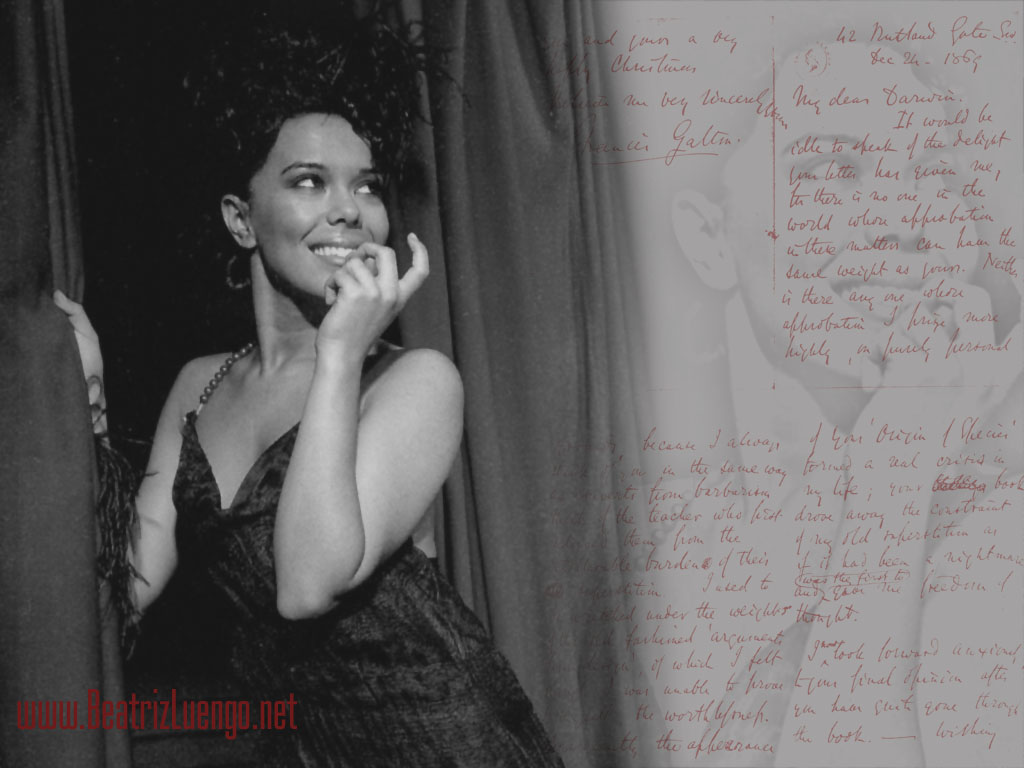 42 Rutland Gate S.W.
Dec 24. 1869
My dear Darwin.
It would be
idle to speak of the delight
your letter has given me,
for there is no one in the
world whose approbation
in these matters can have the
same weight as yours. Neither
is there any one whose
approbation I prize more
highly, on purely personal
because I always
in the same way
from barbarism
the teacher who first
them from the
burden of their
superstition. I used to
under the weight
fashioned arguments
of which I felt
was unable to prove
the worthlessness.
the appearance
of your 'Origin of Species'
formed a real crisis in
my life; your book
drove away the constraint
of my old superstition as
if it had been a nightmare
and was the first to give me freedom of
thought.
I now look forward anxiously
to your final opinion after
you have quite gone through
the book. — wishing
and yours a very
Christmas
me very sincerely yours
Francis Galton.
www.BeatrizLuengo.net